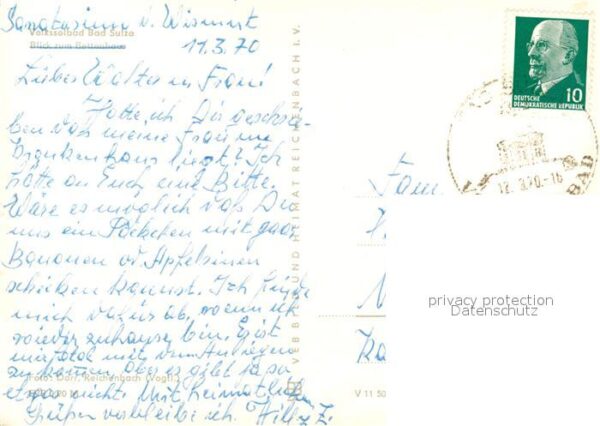 Sanatorium d. Wismut
Volkssolbad Bad Sulza
Blick zum Bettenhaus
11.3.70
Lieber Walter u. Frau!
Hatte ich Dir geschrie-
ben daß meine Frau im
Krankenhaus liegt? Ich
hätte an Euch eine Bitte.
Wäre es möglich daß Du
uns ein Päckchen mit paar
Bananen od. Apfelsinen
schicken kannst. Ich finde
mich dafür ab, wenn ich
wieder zuhause bin. Es ist
mit dem
zu kommen. Aber es gibt ja so
etwas nicht. Mit heimatlichen
Foto: Darr, Reichenbach (Vogtl.)
Grüßen verbleibe ich. Willy Z.
VEB BILD UND HEIMAT REICHENBACH I. V.
V 11 50
DEUTSCHE
DEMOKRATISCHE REPUBLIK
10
12.3.70-16
BAD
Fam
privacy protection
Datenschutz